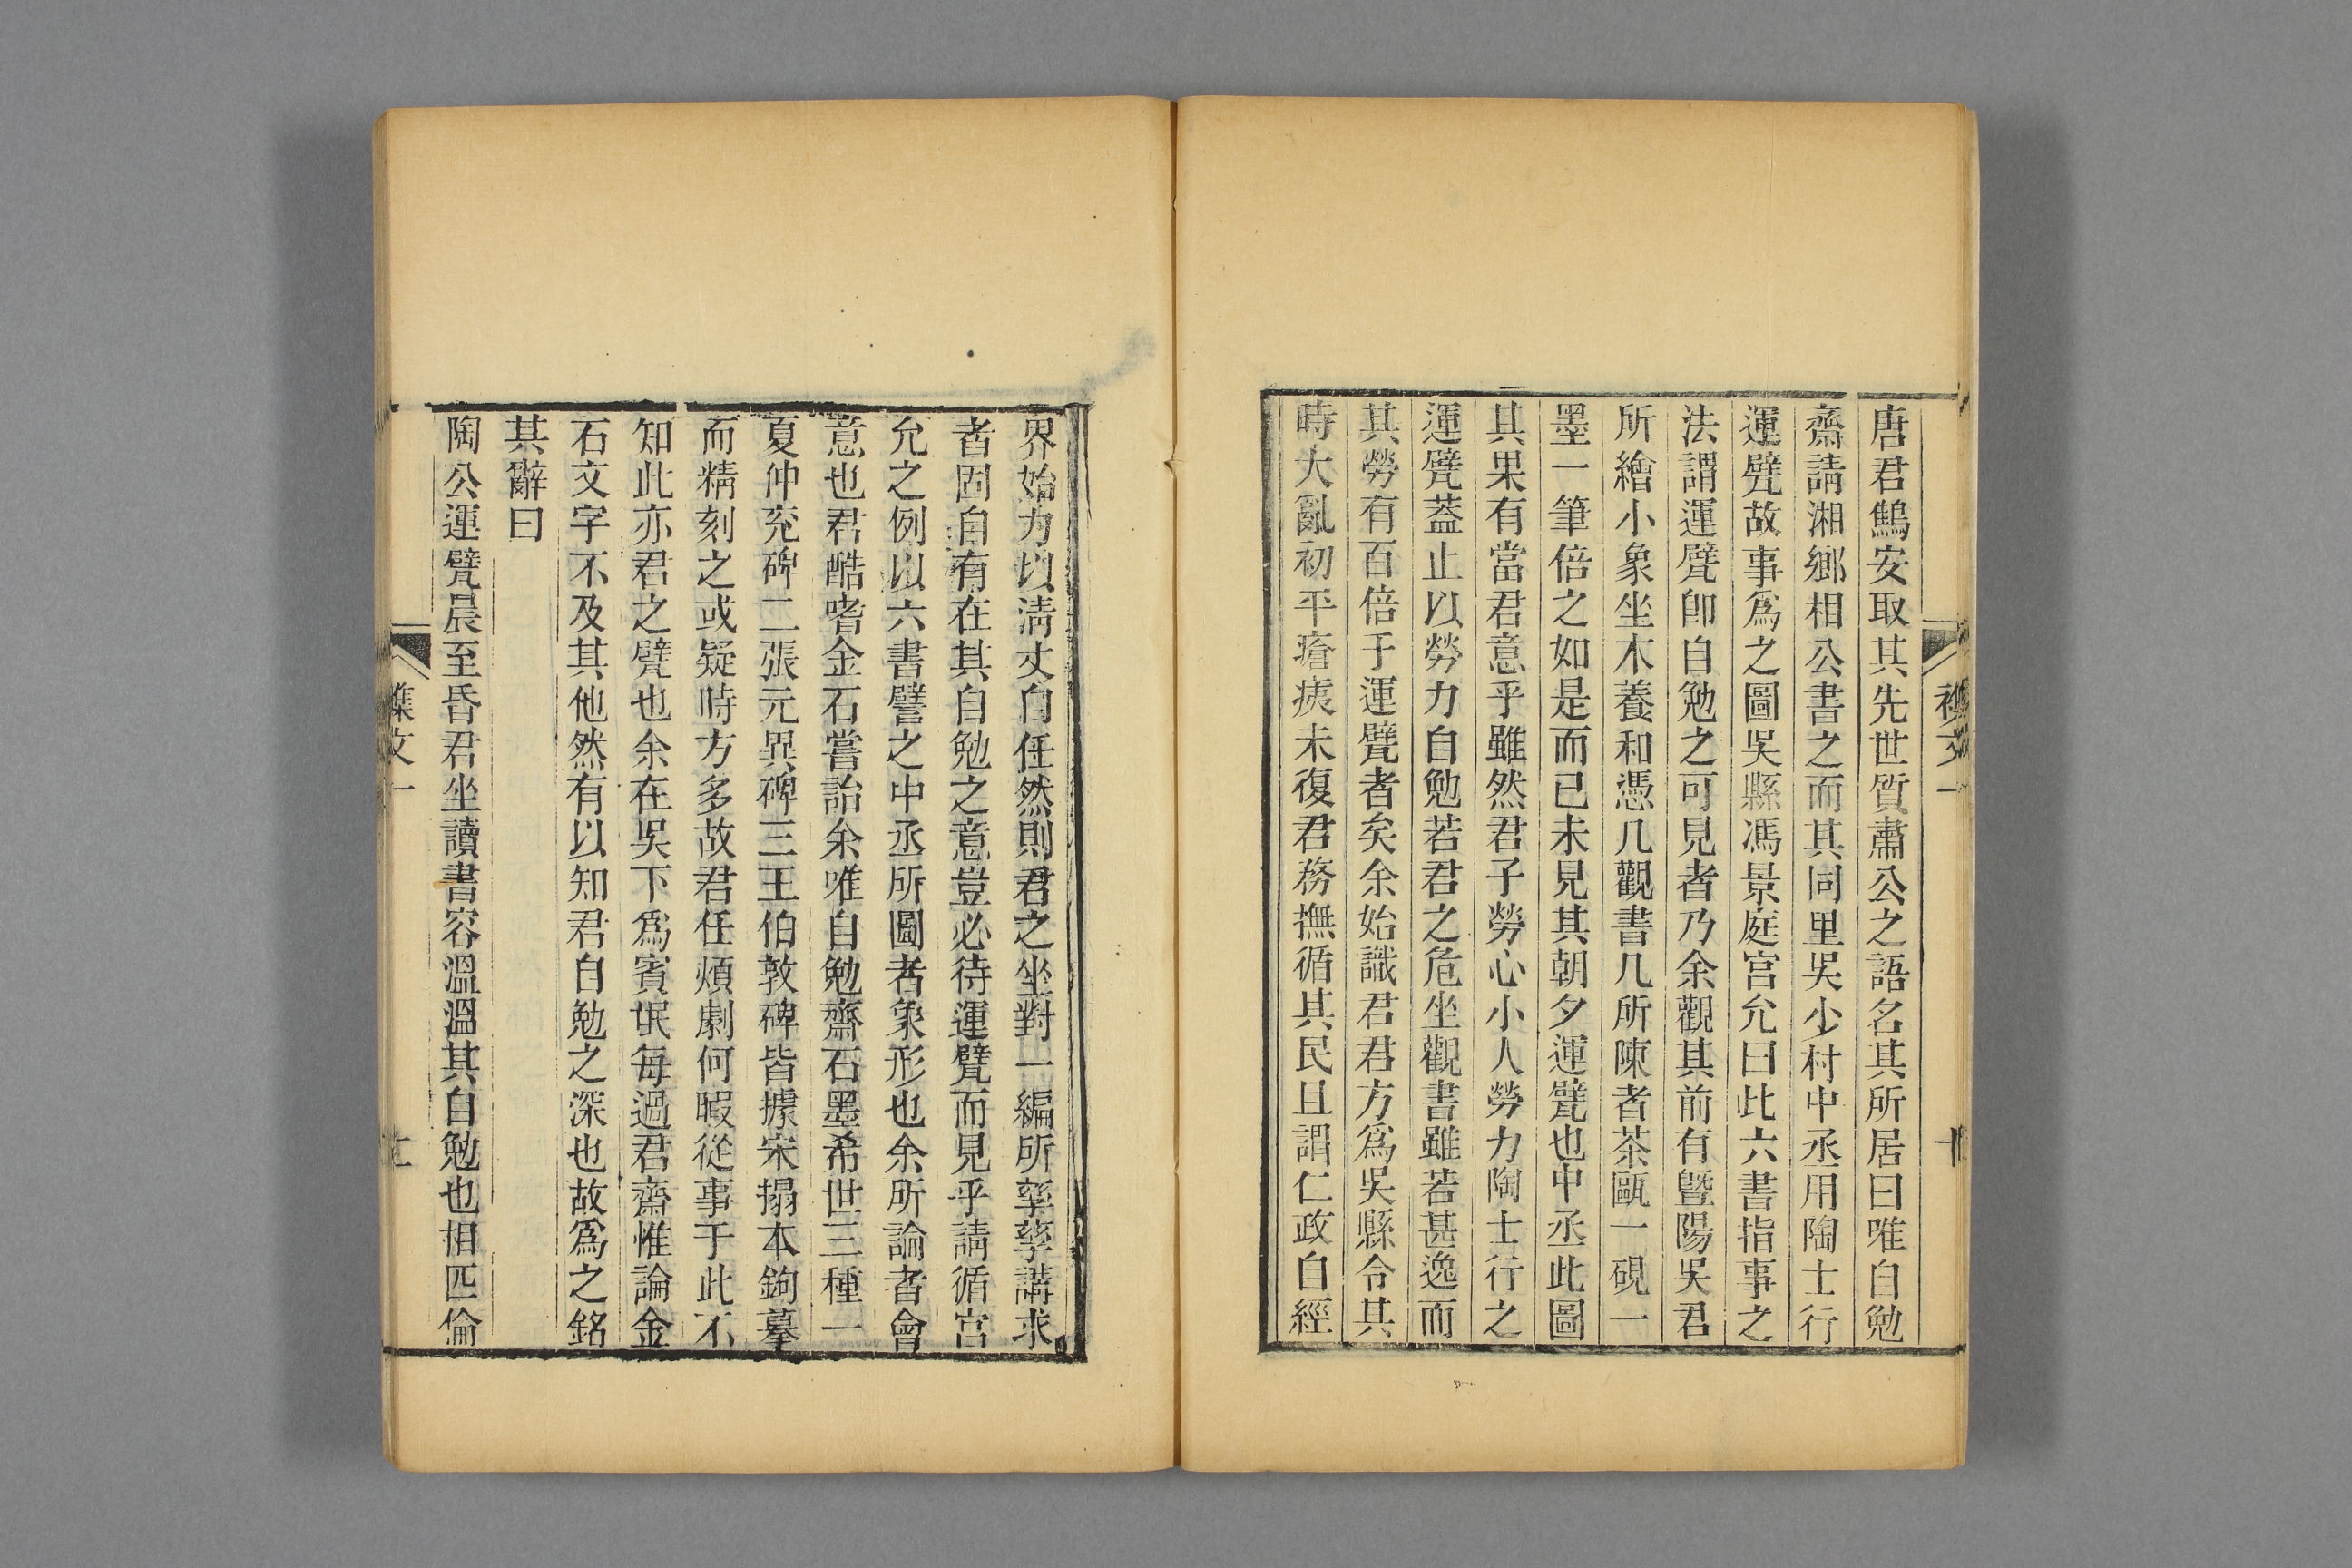 唐君鷦安取其先世質肅公之語名其所居曰唯自勉
齋請湘鄉相公書之而其同里吳少村中丞用陶士行
運甓故事爲之圖吳縣馮景庭宮允曰此六書指事之
法謂運甓卽自勉之可見者乃余觀其前有曁陽吳君
所繪小象坐木養和憑几觀書几所陳者茶甌一硯一
墨一筆倍之如是而已未見其朝夕運甓也中丞此圖
其果有當君意乎雖然君子勞心小人勞力陶士行之
運甓蓋止以勞力自勉若君之危坐觀書雖若甚逸而
其勞有百倍于運甓者矣余始識君君方爲吳縣令其
時大亂初平瘡痍未復君務撫循其民且謂仁政自經
界始力以淸丈自任然則君之坐對一編所孳孳講求
者固自有在其自勉之意豈必待運甓而見乎請循宮
允之例以六書譬之中丞所圖者象形也余所論者會
意也君酷嗜金石嘗詒余唯自勉齋石墨希世三種一
夏仲兖碑二張元異碑三王伯敦碑皆據宋搨本鉤摹
而精刻之或疑時方多故君任煩劇何暇從事于此不
知此亦君之甓也余在吳下爲賓氓每過君齋惟論金
石文字不及其他然有以知君自勉之深也故爲之銘
其辭曰
陶公運甓晨至昏君坐讀書容溫溫其自勉也相匹倫
襍文一